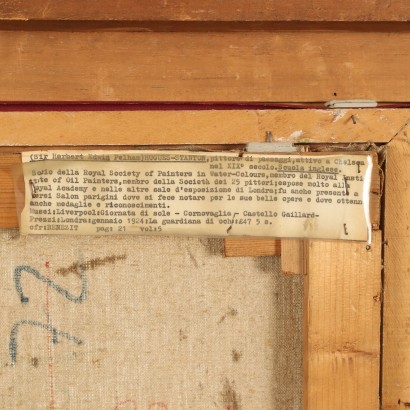 (Sir Herbert Edwin Pelham)HUGUES-STANTON,pittore di paesaggi,attivo a Chelsea
nel XIX° secolo.Scuola inglese.
Socio della Royal Society of Painters in Water-Colours,membro del Royal Insti
tute of Oil Painters,membro della Società dei 25 pittori;espose molto alla
Royal Academy e nelle altre sale d'esposizione di Londra;fu anche presente a
diversi Salon parigini dove si fece notare per le sue belle opere e dove ottenne
anche medaglie e riconoscimenti.
Musei:Liverpool:Giornata di sole - Cornovaglia,- Castello Gaillard-
Prezzi:Londra:gennaio 1924:La guardiana di oche:£47 5 s.
cfr:BENEZIT pag: 21 vol:5